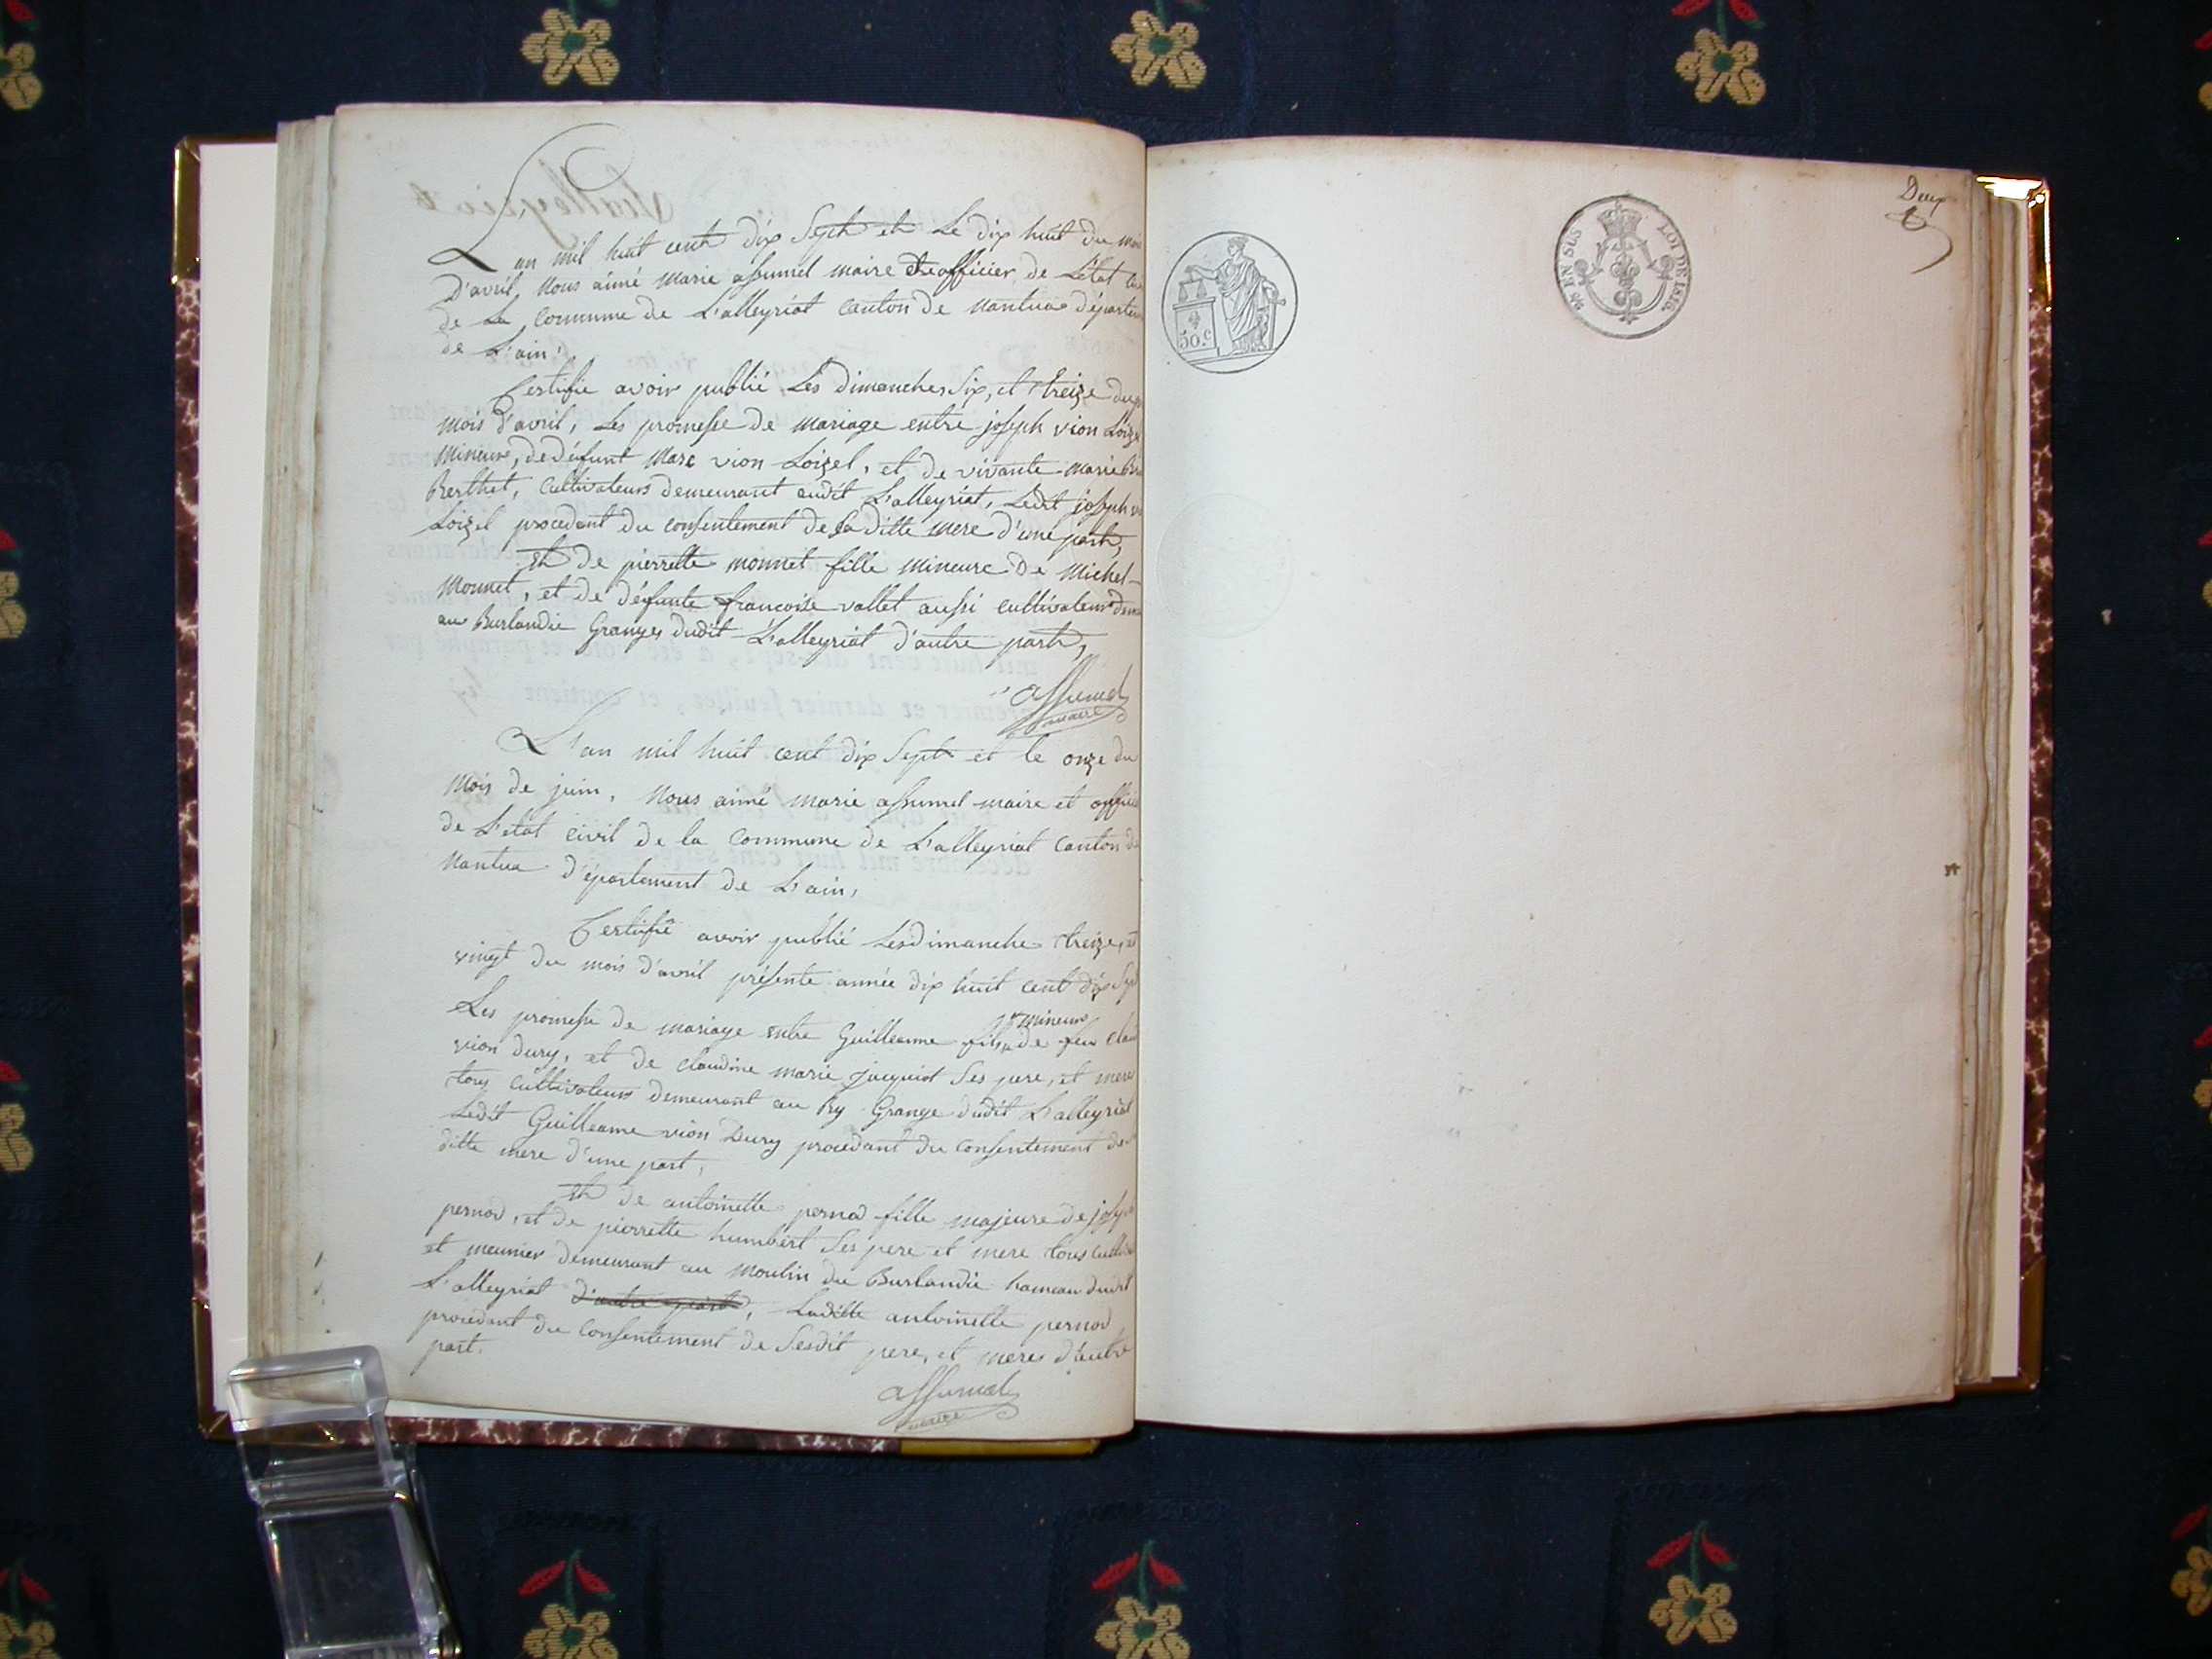 L'an mil huit cent dix Sept et Le dix huit du mois
D'avril, Nous aimé marie assumel maire et officier de L'état
de La Commune de L'alleyriat canton de Nantua départem
de L'ain,
Certifie avoir publié Les dimanches Six, et treize du
mois d'avril, Les promesse de mariage entre joseph vion Loizel
mineur, de défunt Marc vion Loizel, et de vivante marie
Berthet, Cultivateurs demeurant audit L'alleyriat, Ledit joseph
Loizel procedant du consentement de sa ditte mere d'une part,
Et de pierrette monnet fille mineure de Michel
Monnet, et de défunte francoise vallet aussi cultivateur dem
au Burlandie Granges dudit L'alleyriat d'autre part,
assumel
maire
L'an mil huit cent dix Sept et le onze du
Mois de juin, Nous aimé marie assumel maire et officie
de L'etat civil de la Commune de L'alleyriat Canton de
Nantua département de L'ain,
Certifie avoir publié Les dimanche treize, et
vingt du mois d'avril présente année dix huit cent dix Sept
Les promesse de mariage entre Guillaume fils mineur de feu
vion dury, et de claudine marie jacquiot Ses pere, et mere
tous cultivateurs demeurant au Ry Grange dudit L'alleyriat
Ledit Guillaume vion Dury procedant du consentement de
ditte mere d'une part,
Et de antoinette pernod fille majeure de joseph
pernod, et de pierrette humbert Ses pere et mere tous
et meunier demeurant au moulin du Burlandie hameau dudit
L'alleyriat d'autre part, Laditte antoinette pernod
procedant du consentement de Sesdit pere, et meres d'autre
part.
assumel
maire
50.c
EN SUS LOI DE 1816.
Deux